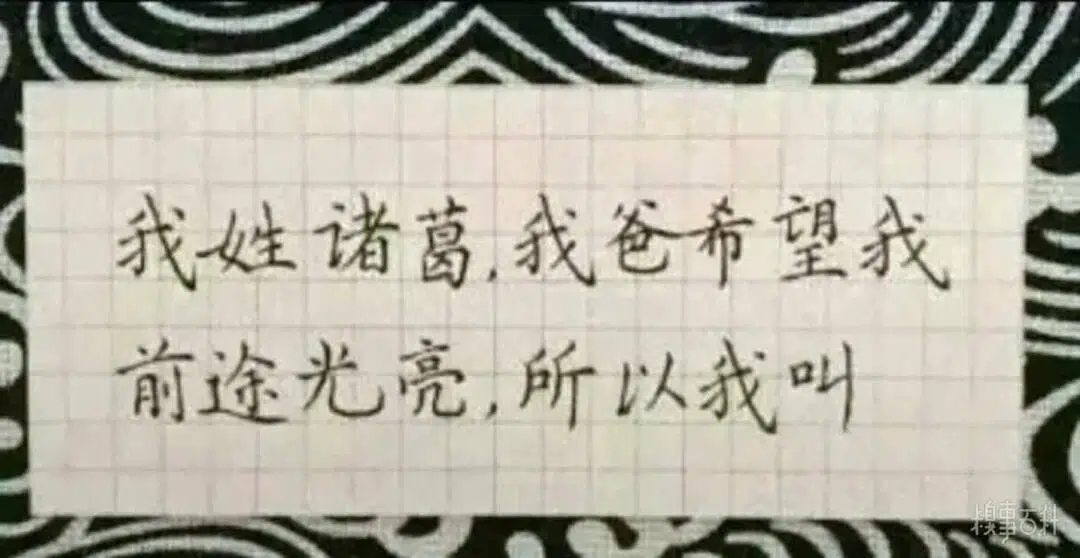 我姓诸葛,我爸希望我
前途光亮,所以我叫
糗事百科